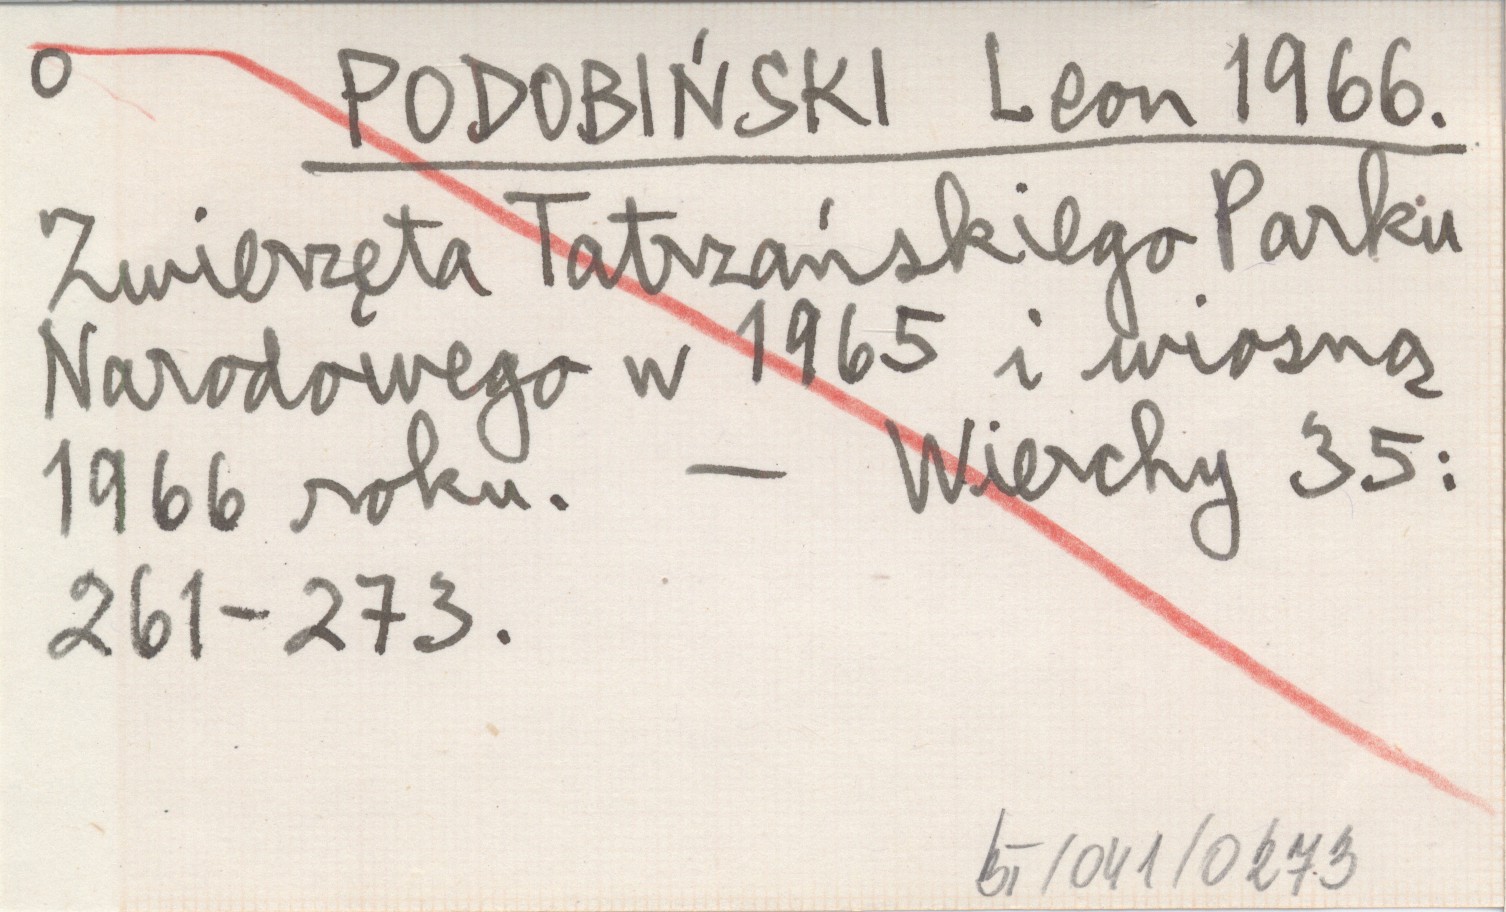 O PODOBIŃSKI Leon 1966.
Zwierzęta Tatrzańskiego Parku
Narodowego w 1965 i wiosną
1966 roku. — Wierchy 35:
261-273.
/041/0273